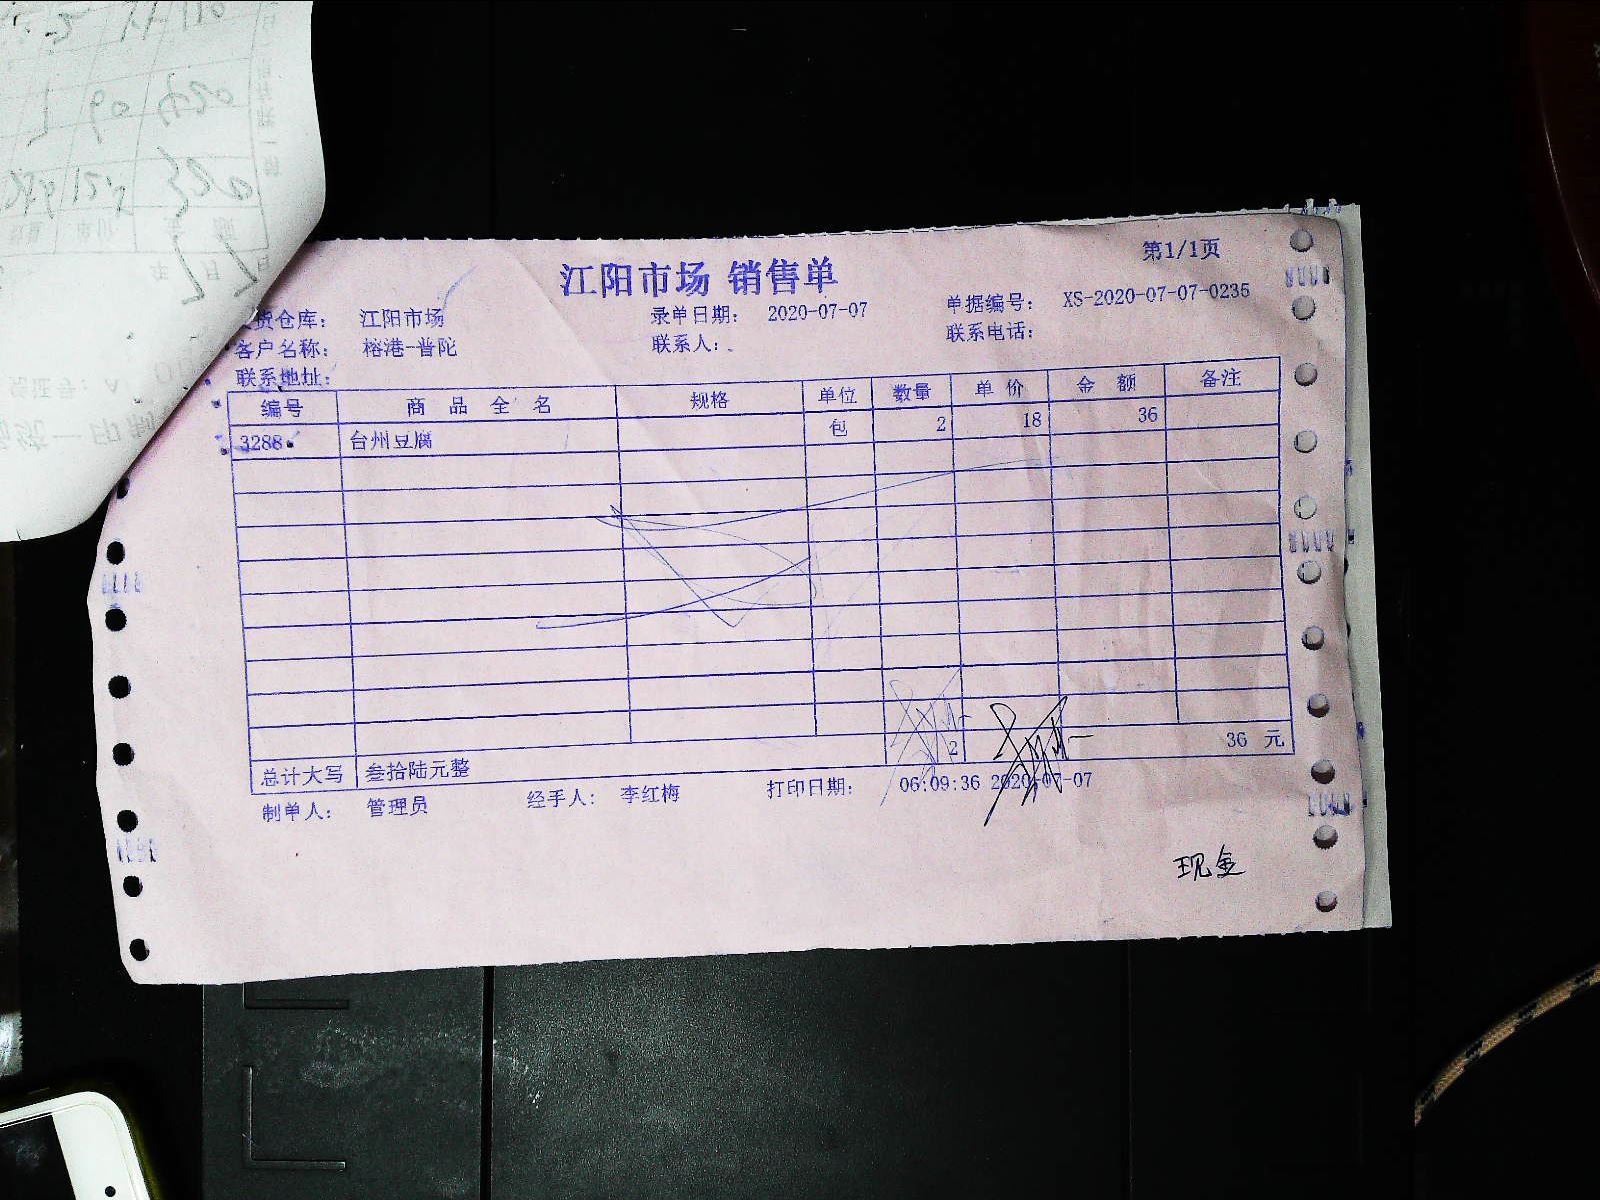 第1/1页
江阳市场 销售单
货仓库： 江阳市场 录单日期： 2020-07-07 单据编号： XS-2020-07-07-0235
客户名称： 榕港-普陀 联系人： 联系电话：
联系地址：
编号 商品全名 规格 单位 数量 单价 金额 备注
3288 台州豆腐 包 2 18 36
2 36 元
总计大写 叁拾陆元整
制单人： 管理员 经手人： 李红梅 打印日期： 06:09:36 2020-07-07
现金